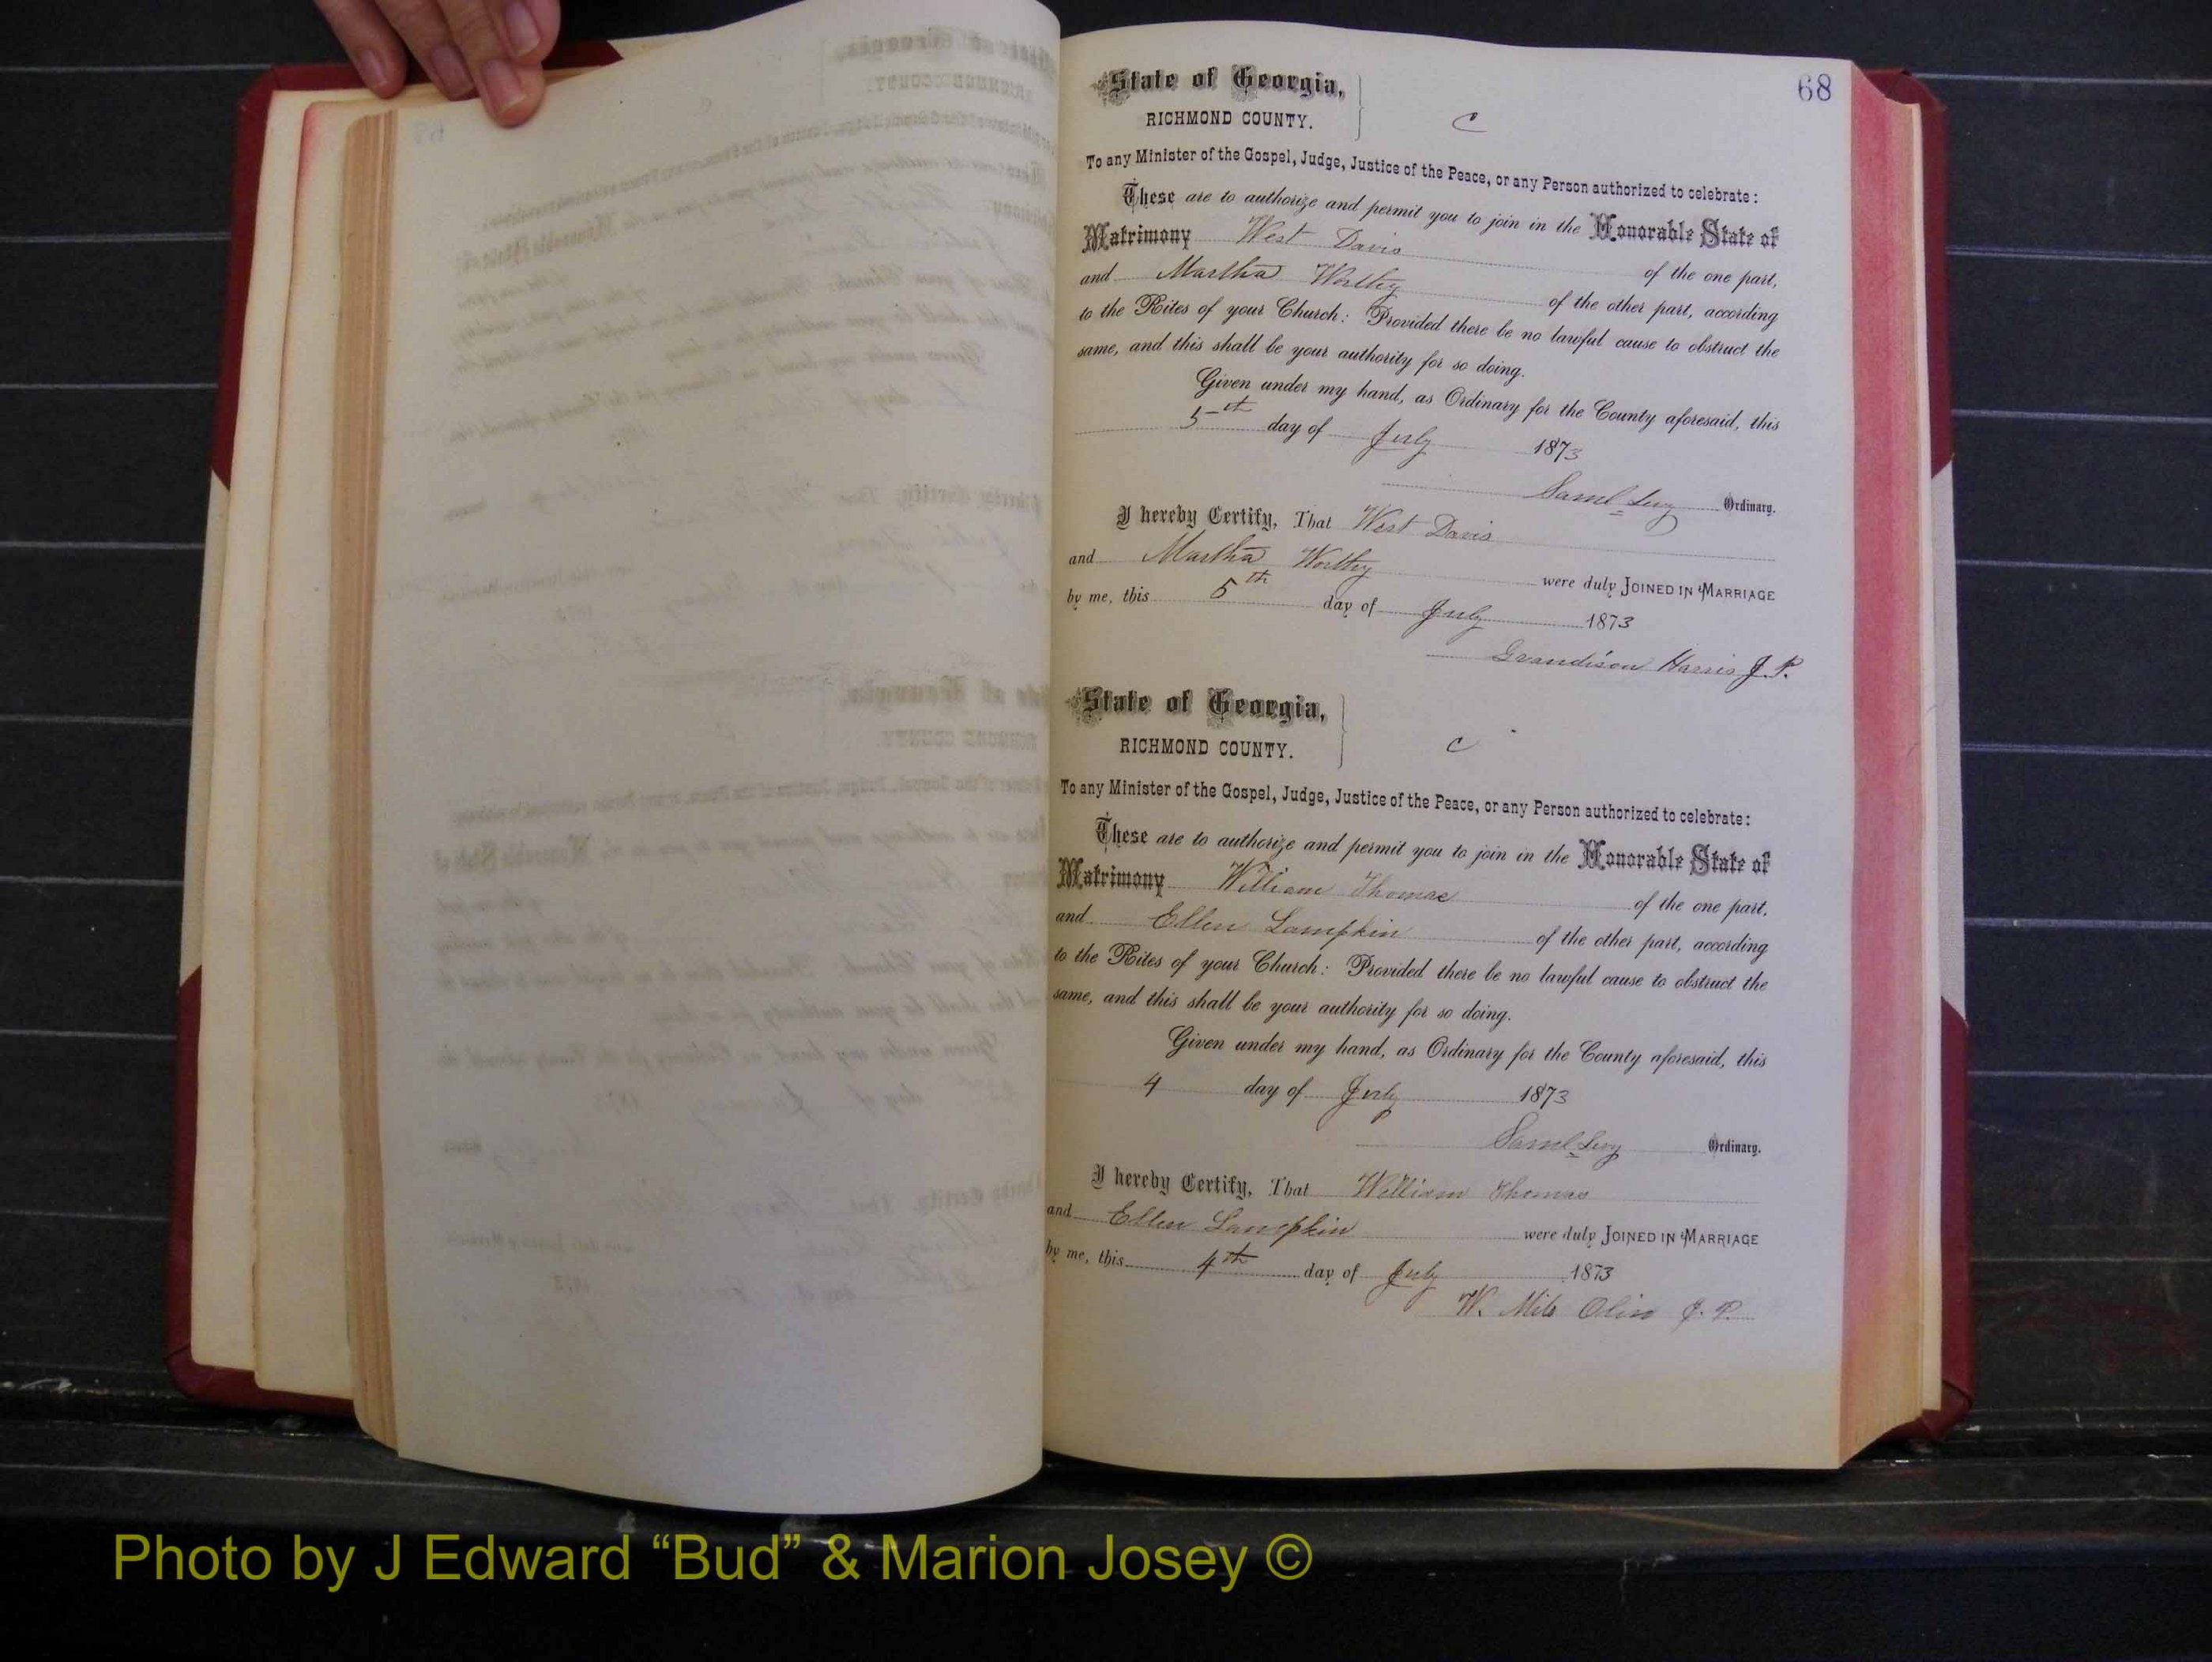 68
State of Georgia,
RICHMOND COUNTY.
C
To any Minister of the Gospel, Judge, Justice of the Peace, or any Person authorized to celebrate:
These are to authorize and permit you to join in the Honorable State of
Matrimony West Davis of the one part,
and Martha Worthy of the other part, according
to the Rites of your Church: Provided there be no lawful cause to obstruct the
same, and this shall be your authority for so doing.
Given under my hand, as Ordinary for the County aforesaid, this
5th day of July 1873
Saml Levy Ordinary.
I hereby Certify, That West Davis
and Martha Worthy were duly JOINED IN MARRIAGE
by me, this 5th day of July 1873
Grandison Harris J. P.
State of Georgia,
RICHMOND COUNTY.
C
To any Minister of the Gospel, Judge, Justice of the Peace, or any Person authorized to celebrate:
These are to authorize and permit you to join in the Honorable State of
Matrimony William Thomas of the one part,
and Ellen Lampkin of the other part, according
to the Rites of your Church: Provided there be no lawful cause to obstruct the
same, and this shall be your authority for so doing.
Given under my hand, as Ordinary for the County aforesaid, this
4 day of July 1873
Saml Levy Ordinary.
I hereby Certify, That William Thomas
and Ellen Lampkin were duly JOINED IN MARRIAGE
by me, this 4th day of July 1873
W. Milo Olin J. P.
Photo by J Edward “Bud” & Marion Josey ©